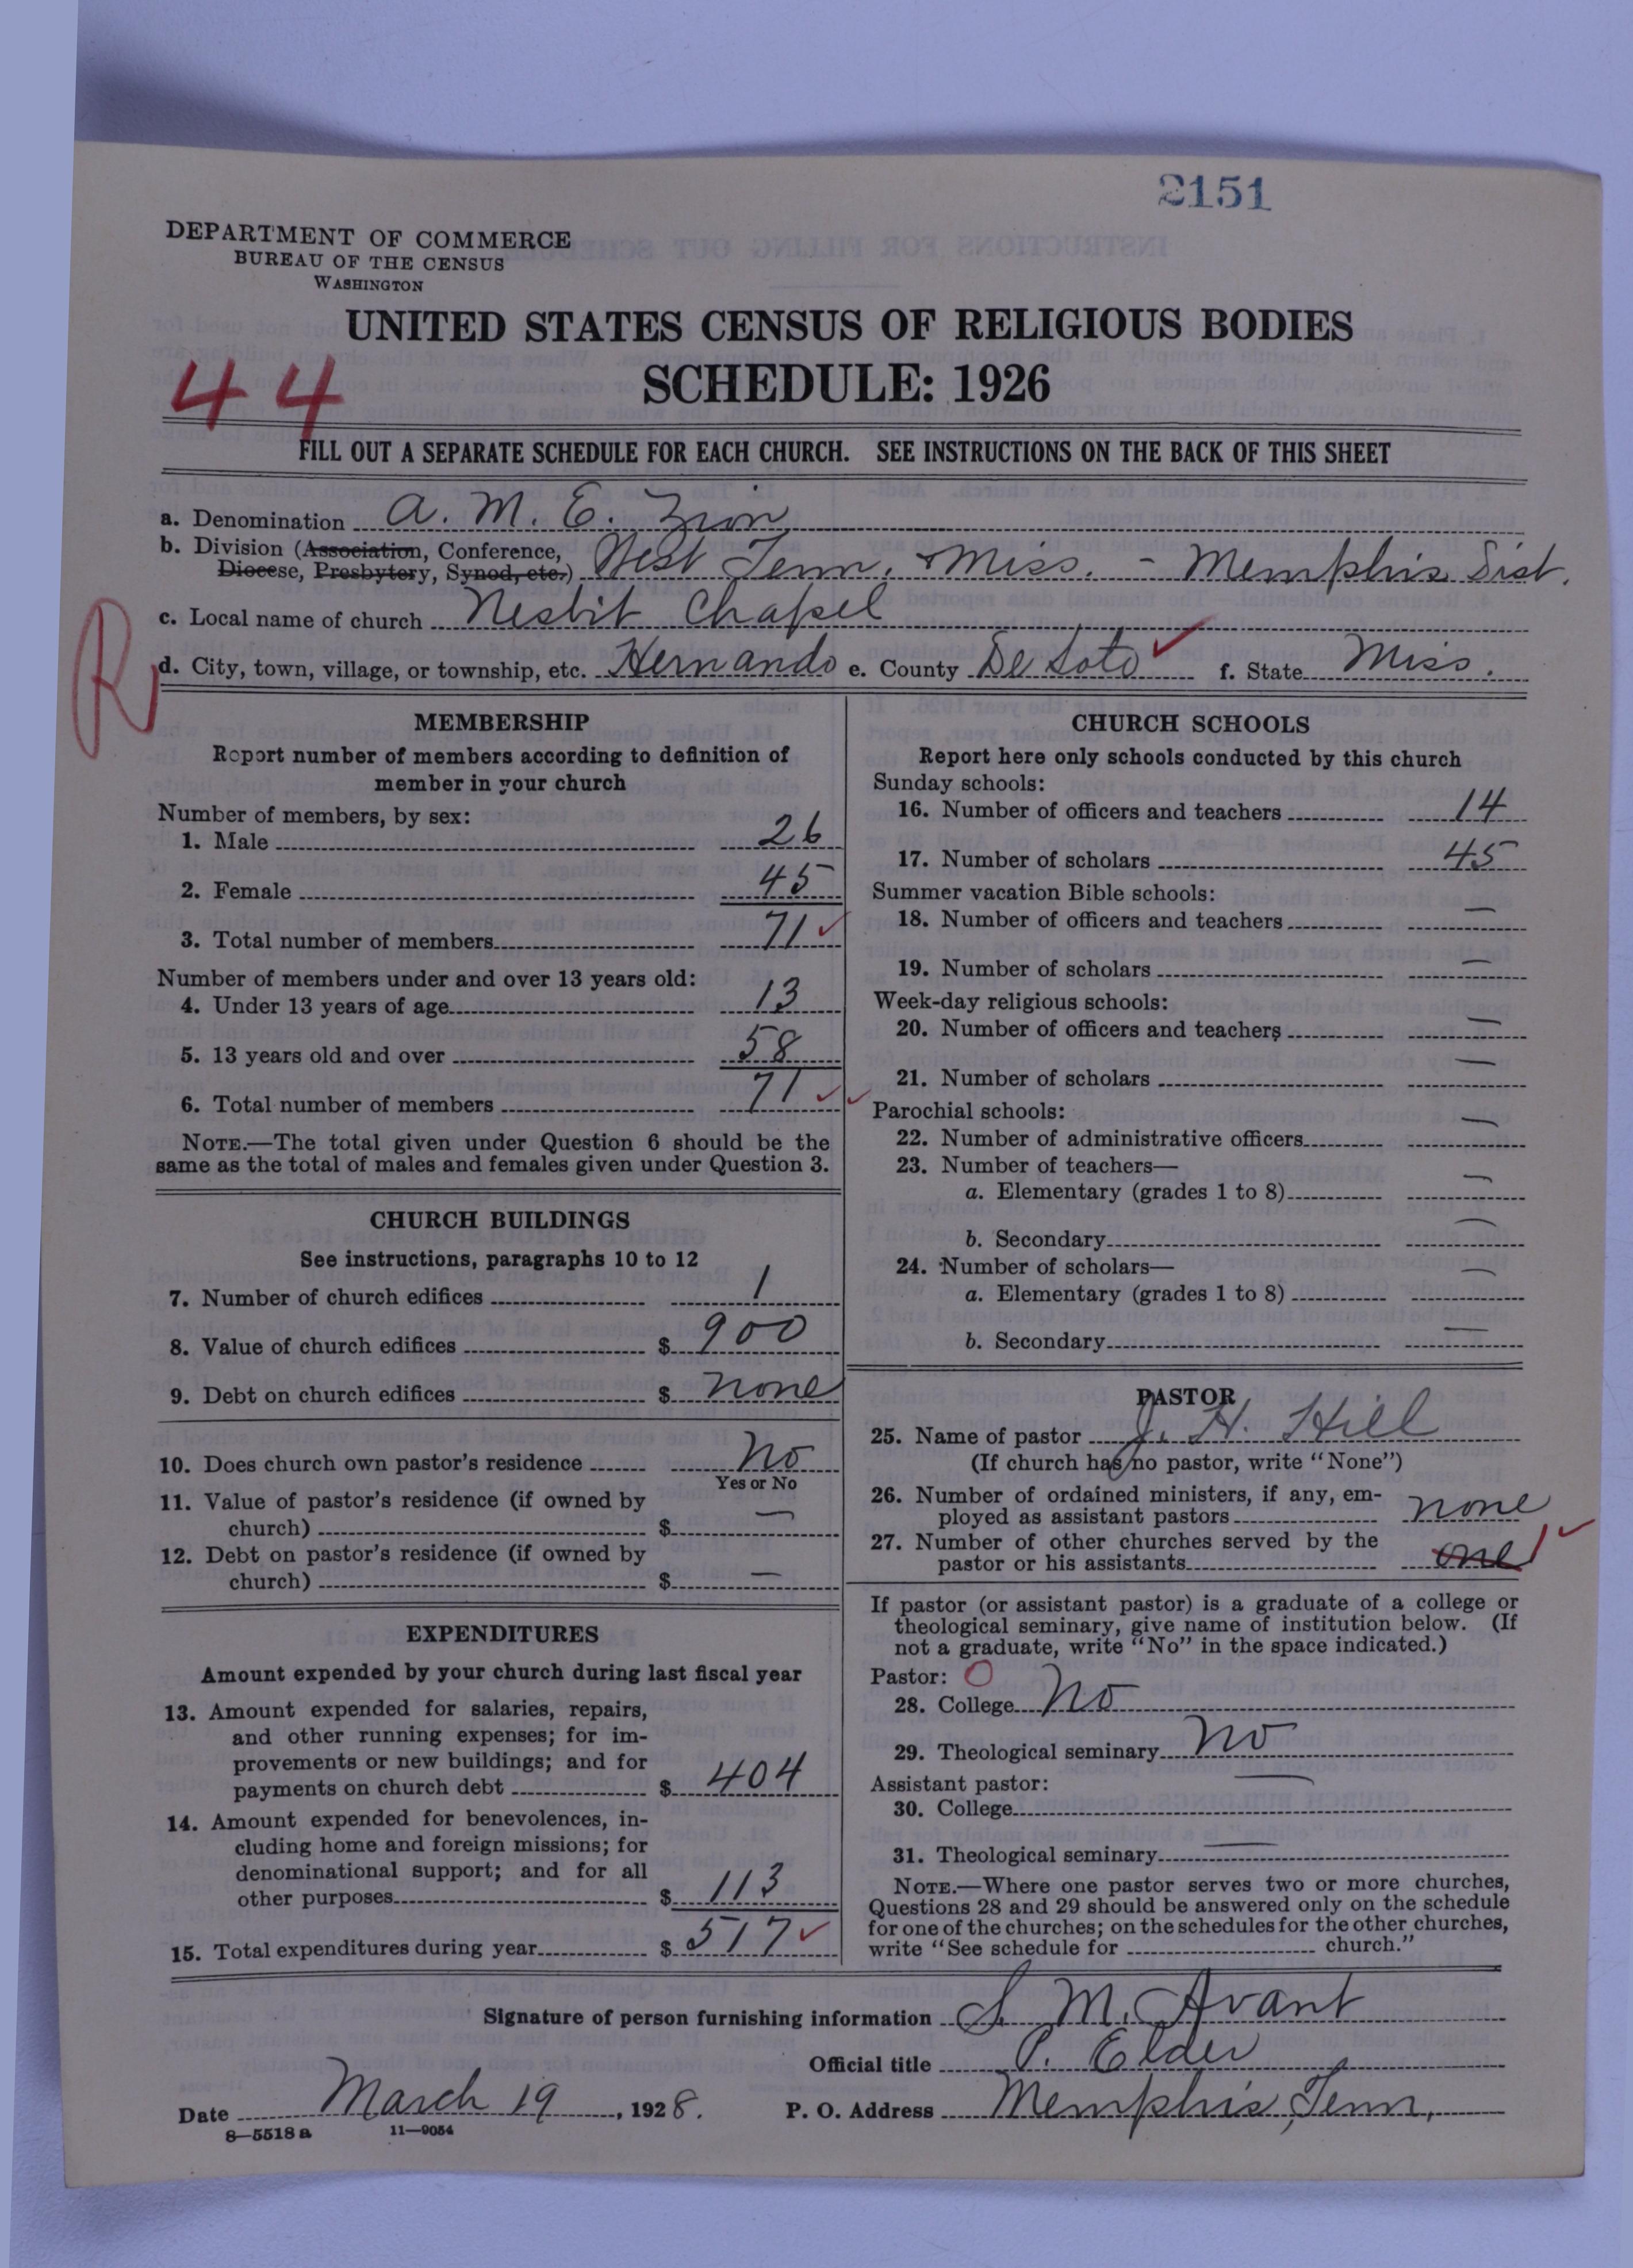 2151
DEPARTMENT OF COMMERCE
BUREAU OF THE CENSUS
WASHINGTON
UNITED STATES CENSUS OF RELIGIOUS BODIES
SCHEDULE: 1926
44
FILL OUT A SEPARATE SCHEDULE FOR EACH CHURCH. SEE INSTRUCTIONS ON THE BACK OF THIS SHEET
a. Denomination A. M. E. Zion
b. Division (Association, Conference, Diocese, Presbytery, Synod, etc.) West Tenn. & Miss. - Memphis Dist.
c. Local name of church Nesbit Chapel
R
d. City, town, village, or township, etc. Hernando e. County De Soto ✓ f. State Miss.
MEMBERSHIP
Report number of members according to definition of
member in your church
Number of members, by sex:
1. Male 26
2. Female 45
3. Total number of members 71 ✓
Number of members under and over 13 years old:
4. Under 13 years of age 13
5. 13 years old and over 58
6. Total number of members 71 ✓ ✓
NOTE.—The total given under Question 6 should be the
same as the total of males and females given under Question 3.
CHURCH BUILDINGS
See instructions, paragraphs 10 to 12
7. Number of church edifices 1
8. Value of church edifices $ 900
9. Debt on church edifices $ none
10. Does church own pastor's residence No
Yes or No
11. Value of pastor's residence (if owned by
church) $ —
12. Debt on pastor's residence (if owned by
church) $ —
EXPENDITURES
Amount expended by your church during last fiscal year
13. Amount expended for salaries, repairs,
and other running expenses; for im-
provements or new buildings; and for
payments on church debt $ 404
14. Amount expended for benevolences, in-
cluding home and foreign missions; for
denominational support; and for all
other purposes $ 113
15. Total expenditures during year $ 517 ✓
CHURCH SCHOOLS
Report here only schools conducted by this church
Sunday schools:
16. Number of officers and teachers 14
17. Number of scholars 45
Summer vacation Bible schools:
18. Number of officers and teachers —
19. Number of scholars —
Week-day religious schools:
20. Number of officers and teachers —
21. Number of scholars —
Parochial schools:
22. Number of administrative officers —
23. Number of teachers—
a. Elementary (grades 1 to 8) —
b. Secondary —
24. Number of scholars—
a. Elementary (grades 1 to 8) —
b. Secondary —
PASTOR
25. Name of pastor J. H. Hill
(If church has no pastor, write "None")
26. Number of ordained ministers, if any, em-
ployed as assistant pastors none
27. Number of other churches served by the
pastor or his assistants one 1 ✓
If pastor (or assistant pastor) is a graduate of a college or
theological seminary, give name of institution below. (If
not a graduate, write "No" in the space indicated.)
Pastor: O
28. College No
29. Theological seminary No
Assistant pastor:
30. College —
31. Theological seminary —
NOTE.—Where one pastor serves two or more churches,
Questions 28 and 29 should be answered only on the schedule
for one of the churches; on the schedules for the other churches,
write "See schedule for church."
Signature of person furnishing information S. M. Avant
Official title P. Elder
Date March 19, 1928. P. O. Address Memphis, Tenn.
8—5518a 11—9054